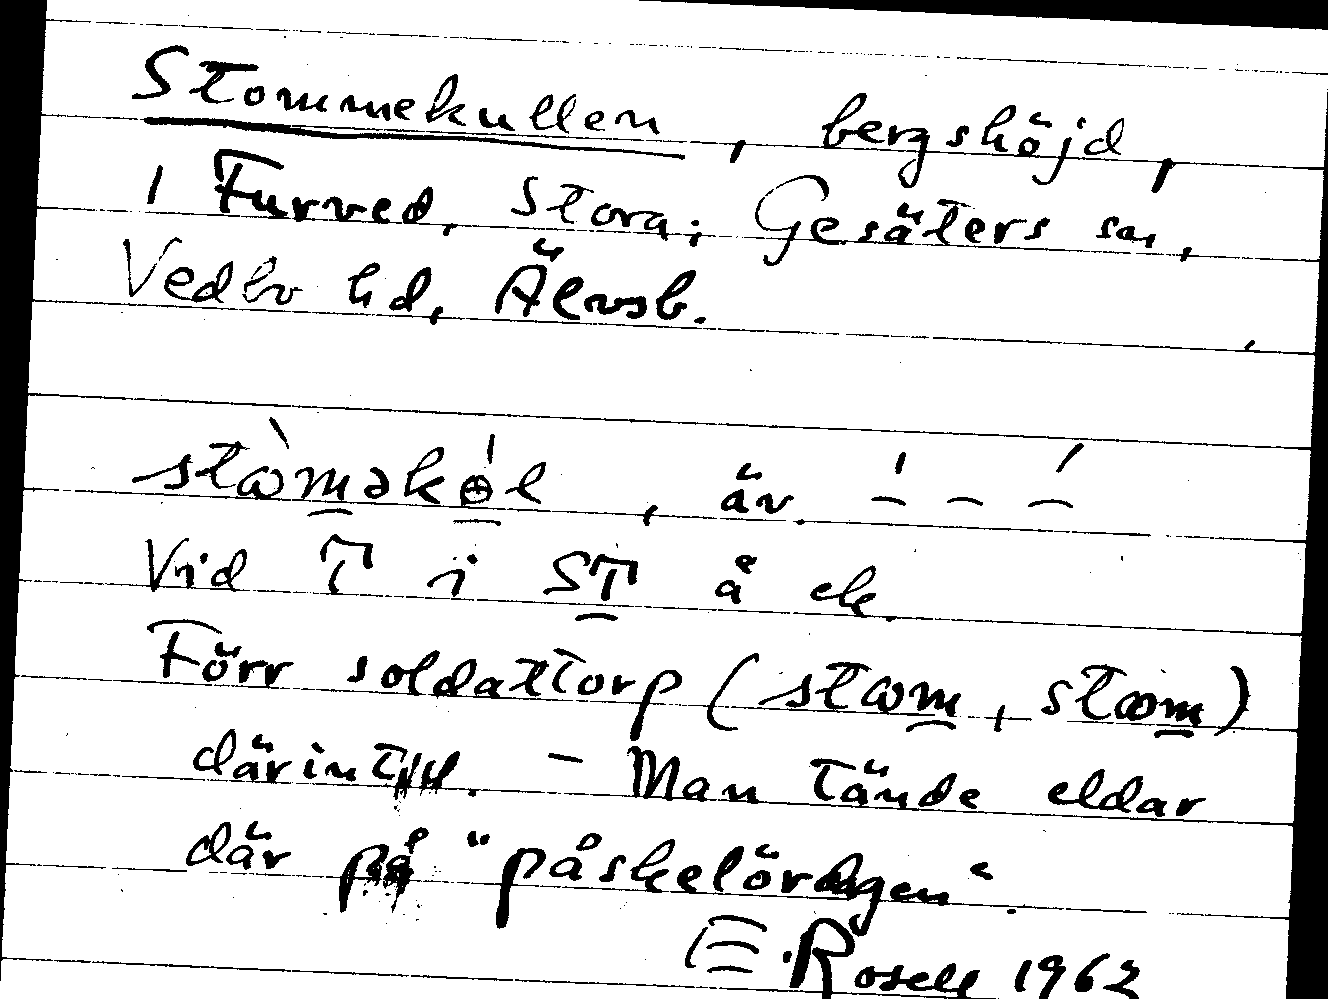 Stommekullen, bergshöjd,
i Furved, Stora; Gesäters sn,
Vedbo hd, Älvsb.
, äv.
Vid T i ST å ek.
Förr soldattorp (
därintill. – Man tände eldar
där på "påskelördagen".
E. Rosell 1962